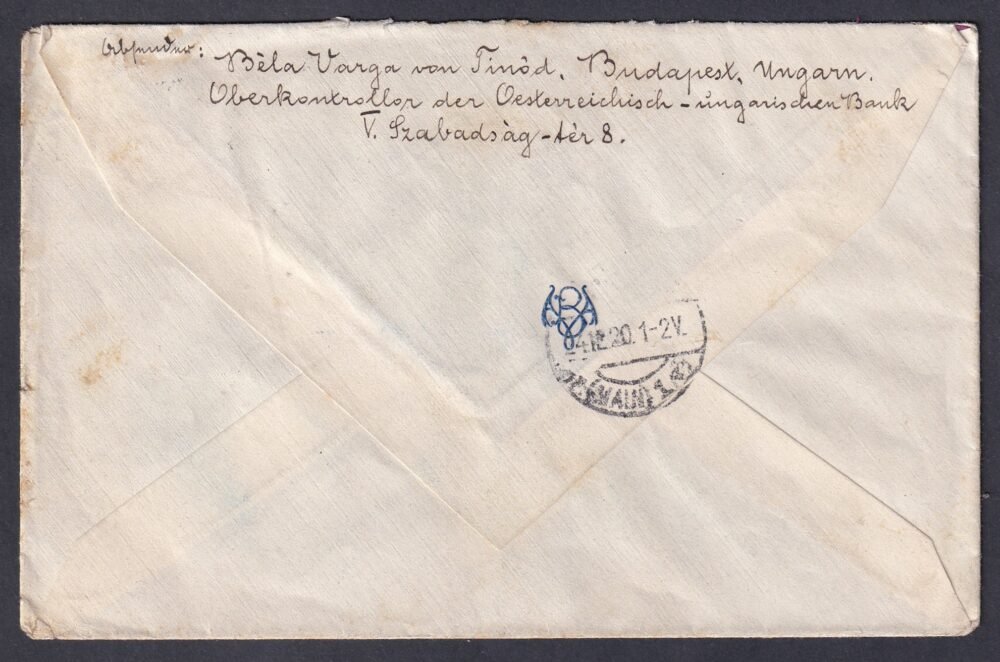 Absender: Bèla Varga von Tinód, Budapest, Ungarn.
Oberkontrollor der Oesterreichisch-ungarischen Bank
V. Szabadság-tér 8.
20. 1-2V.
(MAIN) 1